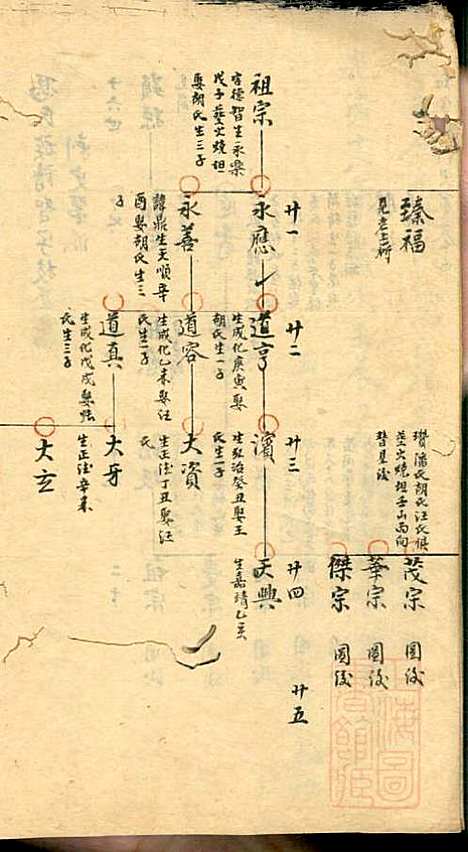 臻福
見老三衍
瓚潘氏胡氏汪氏俱
葬火燒坦壬山丙向
替見後
茂宗
圖後
華宗
圖後
傑宗
圖後
廿一
廿二
廿三
廿四
廿五
祖宗
字德智生永樂
戊子葬火燒坦
娶胡氏生三子
永應
道亨
生成化庚寅娶
胡氏生一子
濱
生弘治癸丑娶王
氏生一子
天興
生嘉靖乙亥
永善
諱鼎生天順辛
酉娶胡氏生三
子
道容
生成化乙未娶汪
氏生一子
大資
生正德丁丑娶汪
氏
道真
生成化戊戌娶
氏生三子
大牙
生正德辛未
大玄